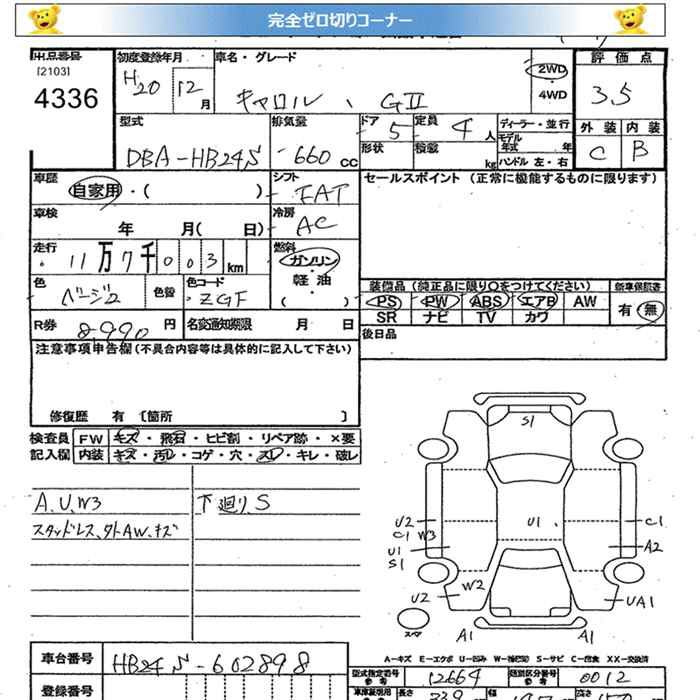 完全ゼロ切りコーナー
出品番号 初度登録年月 車名・グレード 評価点
[2103] H20 12月 2WD
4336 キャロル、GII 4WD 3.5
型式 排気量 ドア 5 定員 4人 ディーラー・並行 外装 内装
モデル年式 年
DBA-HB24S 660cc 形状 積載 kg ハンドル 左・右 C B
車歴 シフト セールスポイント(正常に機能するものに限ります)
自家用・( ) FAT
車検 冷房
年 月( 日) AC
走行 燃料
11万7千003km ガソリン・
軽油・
色 色替 色コード ( ) 装備品(純正品に限り○をつけてください) 新車保証書
ベージュ ZGF PS PW ABS エアB AW 有・無
SR ナビ TV カワ
R券 8,990円 名変通知期限 月 日 後日品
注意事項申告欄(不具合内容等は具体的に記入して下さい)
修復歴 有〔箇所 〕
検査員 FW キズ・飛石・ヒビ割・リペア跡・×要
記入欄 内装 キズ・汚レ・コゲ・穴・スレ・キレ・破レ
A.U.W3 下廻りS
スタッドレス、タトAW、キズ
S1
U1
U2
C1 W3
U1
S1
C1
A2
W2
U2
UA1
スペア
A1 A1
A-キズ E-エクボ U-凹み W-補修跡 S-サビ C-腐食 XX-交換済
車台番号 HB24S-602898 型式指定番号 12664 類別区分番号 0012
参考 参考
登録番号 長さ 339 幅 147 高さ 150